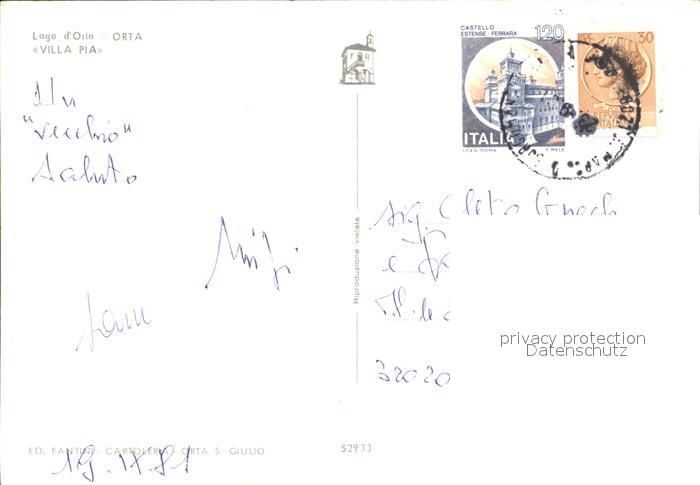 Lago d'Orta - ORTA
«VILLA PIA»
Un
"vecchio"
saluto
19.IX.81
ED. FANTINI - CARTOLERIA - ORTA S. GIULIO
52933
Riproduzione vietata
F R
CASTELLO
ESTENSE · FERRARA
120
ITALIA
I.P.Z.S. - ROMA
T. MELE
30
REPVB
ITALIA
Sig. Cleto
e
32020
privacy protection
Datenschutz